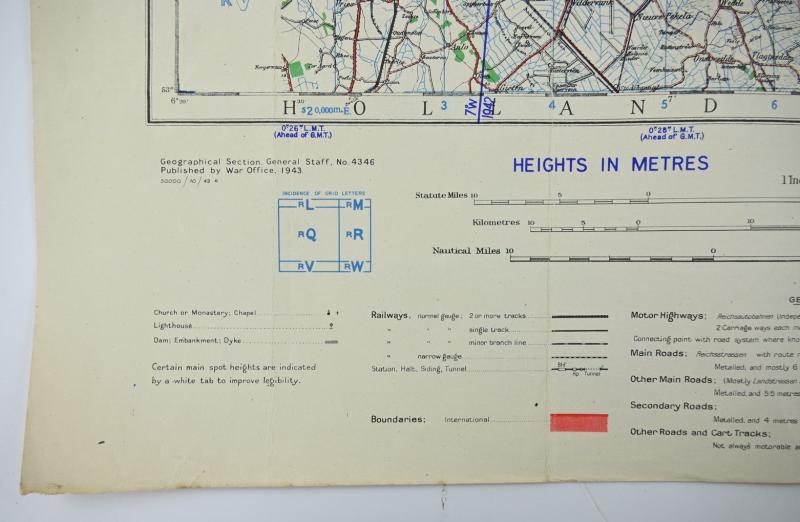 Nieuwe Pekela
53°
6°30'
H O L L A N D
30'
520,000m.E.
3
7°W
1942
4
5
7°
6
0°26" L.M.T.
(Ahead of G.M.T.)
0°28" L.M.T.
(Ahead of G.M.T.)
Geographical Section, General Staff, No. 4346
Published by War Office, 1943.
HEIGHTS IN METRES
1 In
INCIDENCE OF GRID LETTERS
RL RM
RQ RR
RV RW
Statute Miles 10 5 0
Kilometres 10 5 0 10
Nautical Miles 10 0
GE
Church or Monastery; Chapel
Lighthouse
Dam; Embankment; Dyke
Certain main spot heights are indicated
by a white tab to improve legibility.
Railways, normal gauge; 2 or more tracks
" " " single track
" " " minor branch line
" narrow gauge
Station, Halt, Siding, Tunnel
Tunnel
Boundaries; International
Motor Highways; Reichsautobahnen (Indepe
2 Carriage ways each m
Connecting point with road system where kno
Main Roads; Reichsstrassen with route n
Metalled, and mostly 6
Other Main Roads; (Mostly Landstrassen
Metalled, and 5·5 metres
Secondary Roads;
Metalled, and 4 metres
Other Roads and Cart Tracks;
Not always motorable a